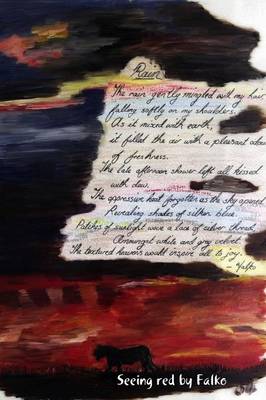 Rain
The rain gently mingled with my hair,
falling softly on my shoulders.
As it mixed with earth,
it filled the air with a pleasant odor
of freshness.
The late afternoon shower left all kissed
with dew.
The oppressive heat forgotten as the sky opened
Revealing shades of silken blue.
Patches of sunlight wove a lace of silver thread,
Amongst white and grey velvet.
The textured heavens would inspire all to joy.
- Falko
Seeing red by Falko